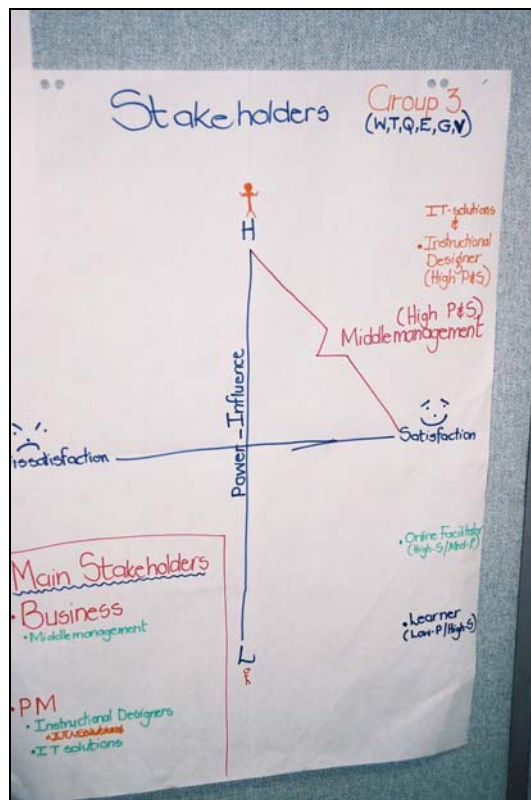 Stakeholders
Group 3
(W,T,Q,E,G,V)
H
IT-solutions
&
• Instructional
Designer
(High P&S)
(High P&S)
Middle management
Power-Influence
issatisfaction
Satisfaction
• Online Facilitator
(High-S/Med-P)
• Learner
(Low-P/High-S)
L
Main Stakeholders
• Business
• Middle management
• PM
• Instructional Designers
• IT solutions